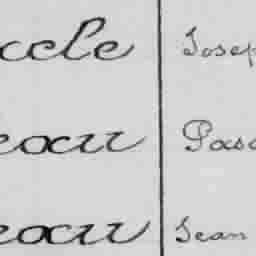 ccle Josep
eau Pasc
eau Jean